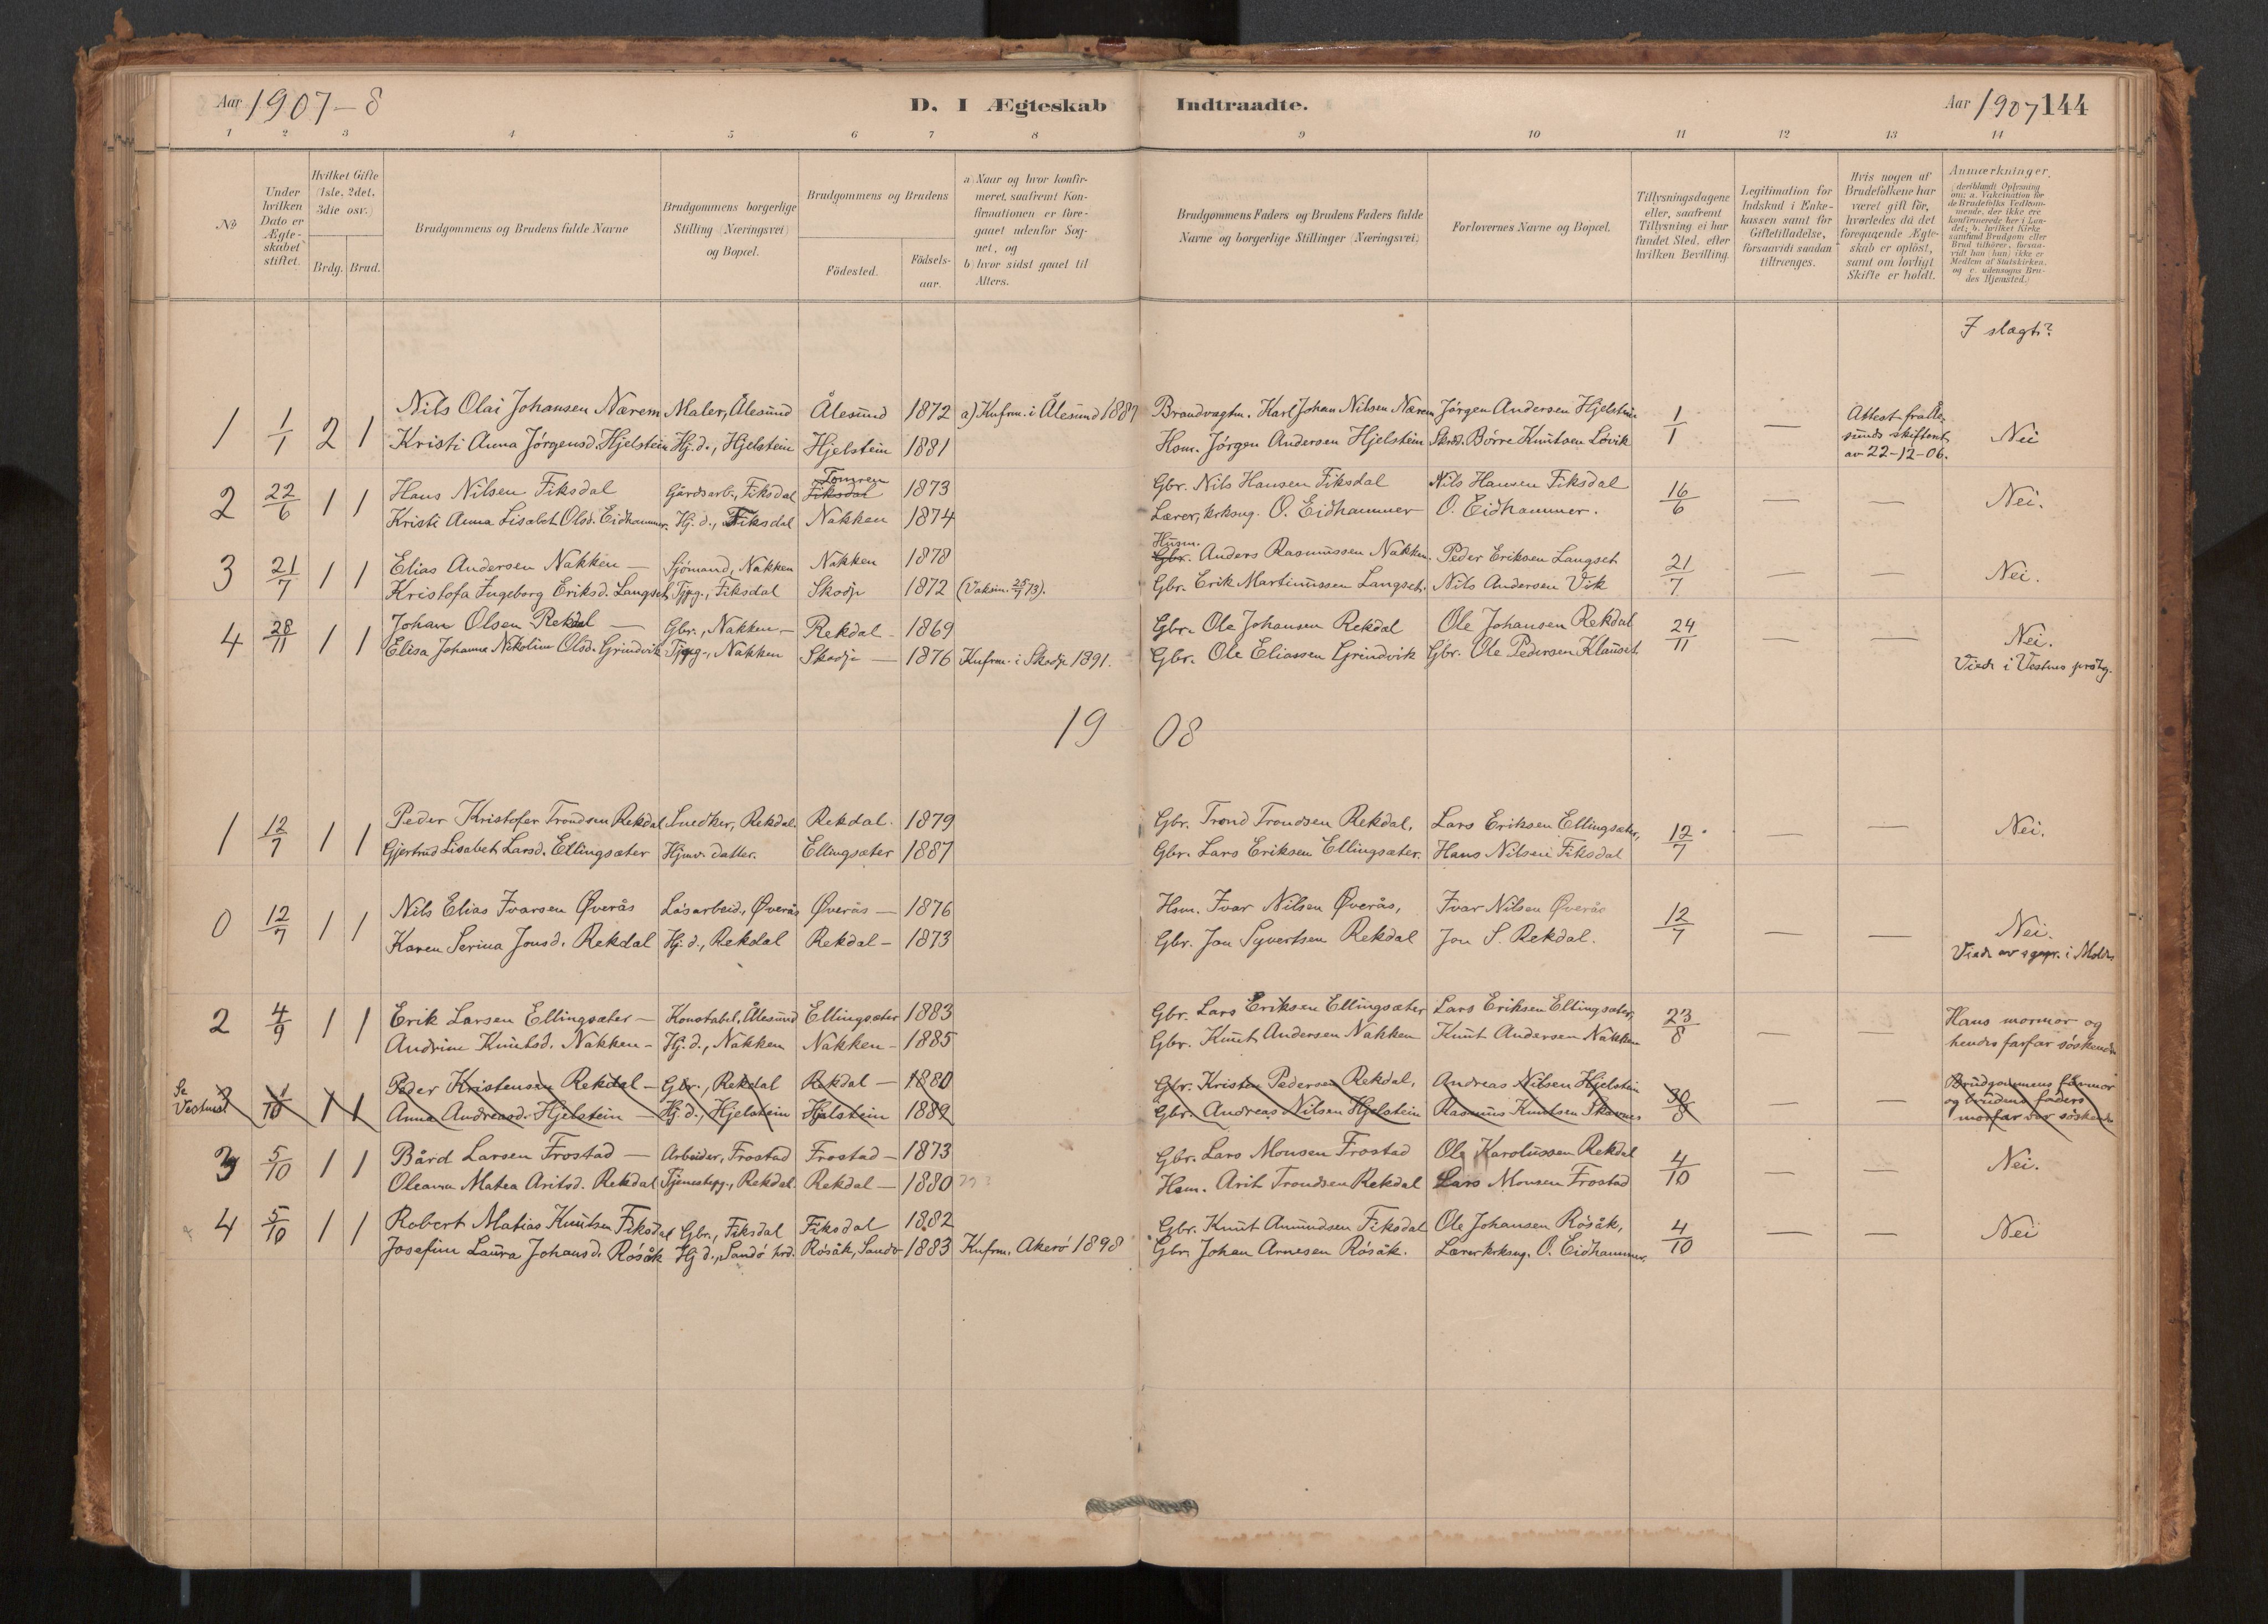 Aar 1907-8 D. I Ægteskab Indtraadte. Aar 1907 144
1 2 3 4 5 6 7 8 9 10 11 12 13 14
№
Under hvilken Dato er Ægteskabet stiftet.
Hvilket Gifte (1ste, 2det, 3die osv.)
Brdg. Brud.
Brudgommens og Brudens fulde Navne
Brudgommens borgerlige Stilling (Næringsvei) og Bopæl.
Brudgommens og Brudens
Födested. Födsels-aar.
a) Naar og hvor konfir-
meret, saafremt Kon-
firmationen er fore-
gaaet udenfor Sog-
net, og
b) hvor sidst gaaet til
Alters.
Brudgommens Faders og Brudens Faders fulde
Navne og borgerlige Stillinger (Næringsvei)
Forlovernes Navne og Bopæl.
Tillysningsdagene
eller, saafremt
Tillysning ei har
fundet Sted, efter
hvilken Bevilling.
Legitimation for
Indskud i Enke-
kassen samt for
Giftetilladelse,
forsaavidt saadan
tiltrænges.
Hvis nogen af
Brudefolkene har
været gift för,
hvorledes da det
foregaaende Ægte-
skab er oplöst,
samt om lovligt
Skifte er holdt.
Anmærkninger,
(deriblandt Oplysning
om: a. Vakcination for
de Brudefolks Vedkom-
mende, der ikke ere
konfirmerede her i Lan-
det; b. hvilket Kirke
samfund Brudgom eller
Brud tilhörer, forsaa-
vidt han (hun) ikke er
Medlem af Statskirken,
og c. udensogns Bru-
des Hjemsted.)
I slægt?
1 1/1 2 1 Nils Olai Johansen Nærem Maler, Ålesund Ålesund 1872 a) Knfrm. i Ålesund 1887 Brandvagtm. Karl Johan Nilsen Nærem Jørgen Andersen Hjelstein 1/1 — Attest fra Åle-
sunds skifteret
av 22-12-06. Nei
Kristi Anna Jørgensd. Hjelstein Hj. d., Hjelstein Hjelstein 1881 Hsm. Jørgen Andersen Hjelstein Børre Knutsen Løvik
2 22/6 1 1 Hans Nilsen Fiksdal Gårdsarb., Fiksdal Fiksdal Tomren 1873 Gbr. Nils Hansen Fiksdal Nils Hansen Fiksdal 16/6 — — Nei.
Kristi Anna Lisabet Olsd. Eidhammer. Hj. d., Fiksdal Nakken 1874 Lærer, krksng. O. Eidhammer O. Eidhammer.
3 21/7 1 1 Elias Andersen Nakken — Sjömand, Nakken Nakken 1878 Gbr. Husm. Anders Rasmussen Nakken. Peder Eriksen Langset 21/7 — — Nei.
Kristofa Ingeborg Eriksd. Langset Tjpg., Fiksdal Skodje 1872 (Vaksin. 25/7 73). Gbr. Erik Martinussen Langset. Nils Andersen Vik
4 28/11 1 1 Johan Olsen Rekdal — Gbr., Nakken — Rekdal 1869 Gbr. Ole Johansen Rekdal Ole Johansen Rekdal 24/11 — — Nei.
Elisa Johanna Nikoline Olsd. Grindvik Tjpg., Nakken Skodje — 1876 Knfrm. i Skodje 1891. Gbr. Ole Eliassen Grindvik Gbr. Ole Pedersen Klauset Viede i Vestnes
19 08
1 12/7 1 1 Peder Kristofer Trondsen Rekdal Snedker, Rekdal. Rekdal. 1879 Gbr. Trond Trondsen Rekdal, Lars Eriksen Ellingsæter, 12/7 — — Nei.
Gjertrud Lisabet Larsd. Ellingsæter Hjmv. datter. Ellingsæter 1887 Gbr. Lars Eriksen Ellingsæter. Hans Nilsen Fiksdal
0 12/7 1 1 Nils Elias Ivarsen Øverås Løsarbeid., Øverås Øverås — 1876 Hsm. Ivar Nilsen Øverås, Ivar Nilsen Øverås 12/7 — — Nei.
Karen Serina Jonsd. Rekdal Hj. d., Rekdal Rekdal — 1873 Gbr. Jon Syvertsen Rekdal Jon S. Rekdal. Viede av sgnpr. i Molde
2 4/9 1 1 Erik Larsen Ellingsæter — Konstabel, Ålesund Ellingsæter 1883 Gbr. Lars Eriksen Ellingsæter Lars Eriksen Ellingsæter, 23/8 — — Hans mormor og
Andrine Knutsd. Nakken — Hj. d., Nakken Nakken — 1885 Gbr. Knut Andersen Nakken Knut Andersen Nakken hendes farfar søskende
Se Vestnes 3 1/10 1 1 Peder Kristensen Rekdal — Gbr., Rekdal Rekdal — 1880 Gbr. Kristen Pedersen Rekdal, Andreas Nilsen Hjelstein 30/8 — — Brudgommens farmor
Anna Andreasd. Hjelstein — Hj. d., Hjelstein Hjelstein 1882 Gbr. Andreas Nilsen Hjelstein Rasmus Knutsen Skavnes og brudens faders
morfar var søskende
3 5/10 1 1 Bård Larsen Frostad — Arbeider, Frostad Frostad — 1873 Gbr. Lars Monsen Frostad Ole Karolussen Rekdal 4/10 — — Nei.
Oleanna Matea Aritsd. Rekdal Tjenestepg., Rekdal. Rekdal — 1880 Hsm. Arit Trondsen Rekdal Lars Monsen Frostad
4 5/10 1 1 Robert Matias Knutsen Fiksdal Gbr., Fiksdal Fiksdal 1882 Gbr. Knut Amundsen Fiksdal Ole Johansen Røsåk, 4/10 — — Nei
Josefine Laura Johansd. Røsåk Hj. d., Sandö hrd. Røsåk, Sandö 1883 Knfrm. Akerö 1898 Gbr. Johan Arnesen Røsåk. Lærer krksng. O. Eidhammer.